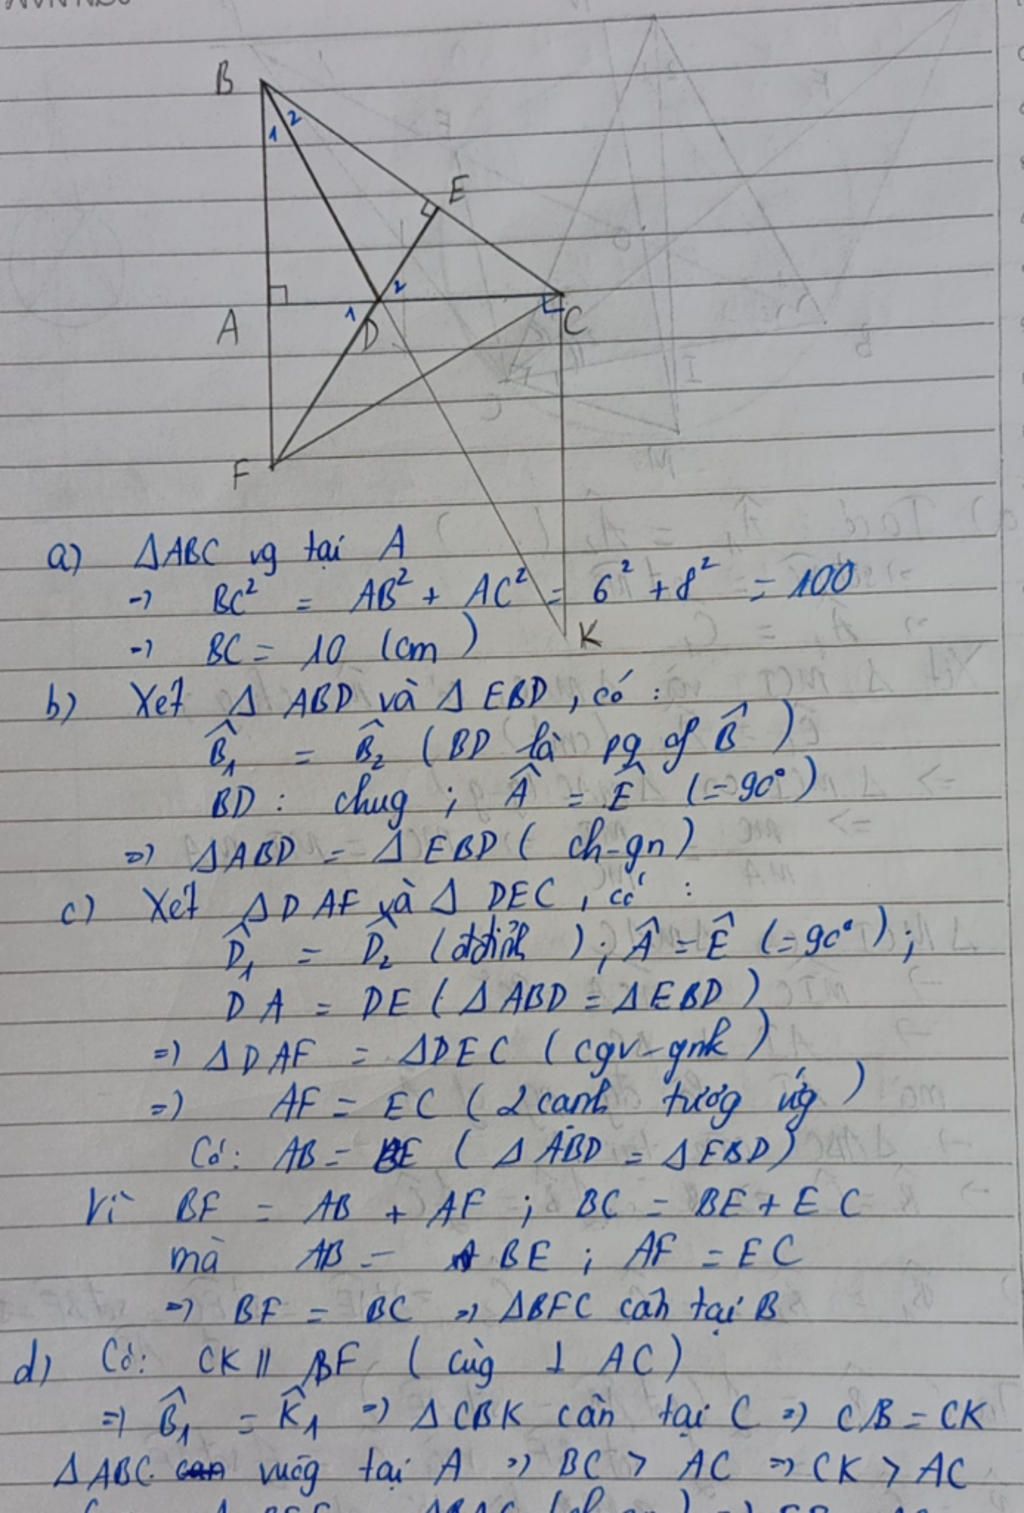 B
1 2
E
A
1
2
D
C
F
K
a) ΔABC vg tại A
→ BC² = AB² + AC² = 6² + 8² = 100
→ BC = 10 (cm)
b) Xét Δ ABD và Δ EBD, có :
B̂₁ = B̂₂ (BD là pg of B̂)
BD : chug ; Â = Ê (=90°)
=> ΔABD = Δ EBD ( ch-gn)
c) Xét ΔDAF và Δ DEC, có :
D̂₁ = D̂₂ (đđỉnh ) ; Â = Ê (=90°) ;
DA = DE ( Δ ABD = Δ EBD )
=> ΔDAF = ΔDEC ( cgv-gnk )
=> AF = EC ( 2 cạnh tương ứg )
Có: AB = BE ( Δ ABD = ΔEBD)
Vì BF = AB + AF ; BC = BE + EC
mà AB = BE ; AF = EC
=> BF = BC => ΔBFC cân tại B
d) Có: CK // BF ( cùg ⊥ AC)
=> B̂₁ = K̂₁ => Δ CBK cân tại C => CB = CK
ΔABC vuôg tại A => BC > AC => CK > AC